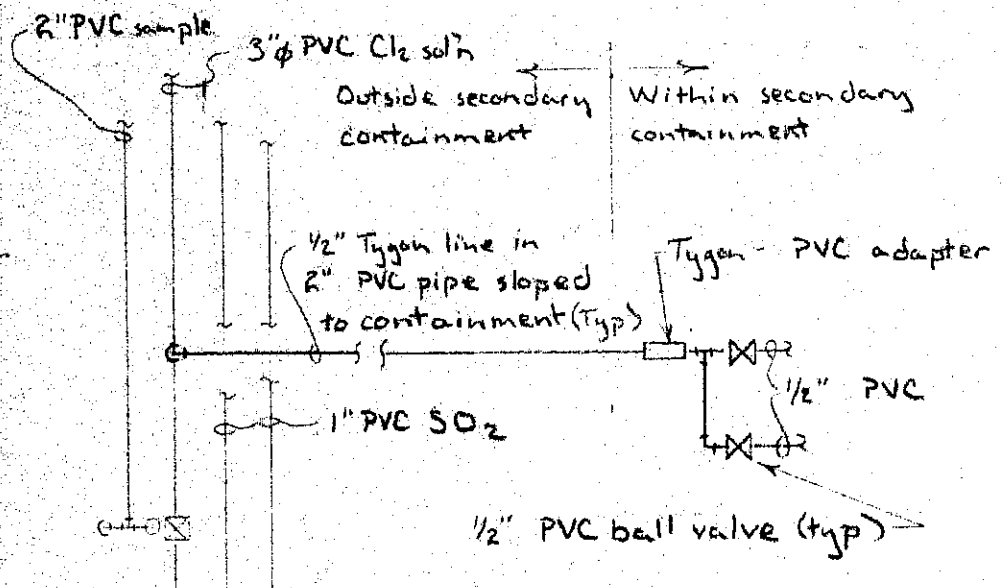 2" PVC sample
3"ϕ PVC Cl2 sol'n
Outside secondary
containment
Within secondary
containment
1/2" Tygon line in
2" PVC pipe sloped
to containment (Typ)
Tygon - PVC adapter
1/2" PVC
1" PVC SO2
1/2" PVC ball valve (typ)